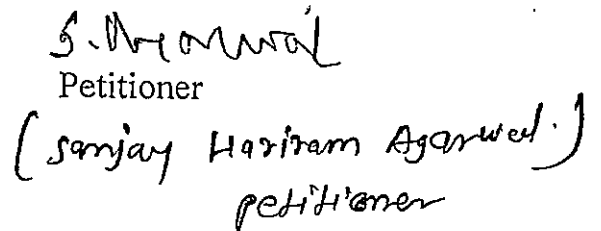 S. Agarwal
Petitioner
(Sanjay Hariram Agarwal.)
petitioner